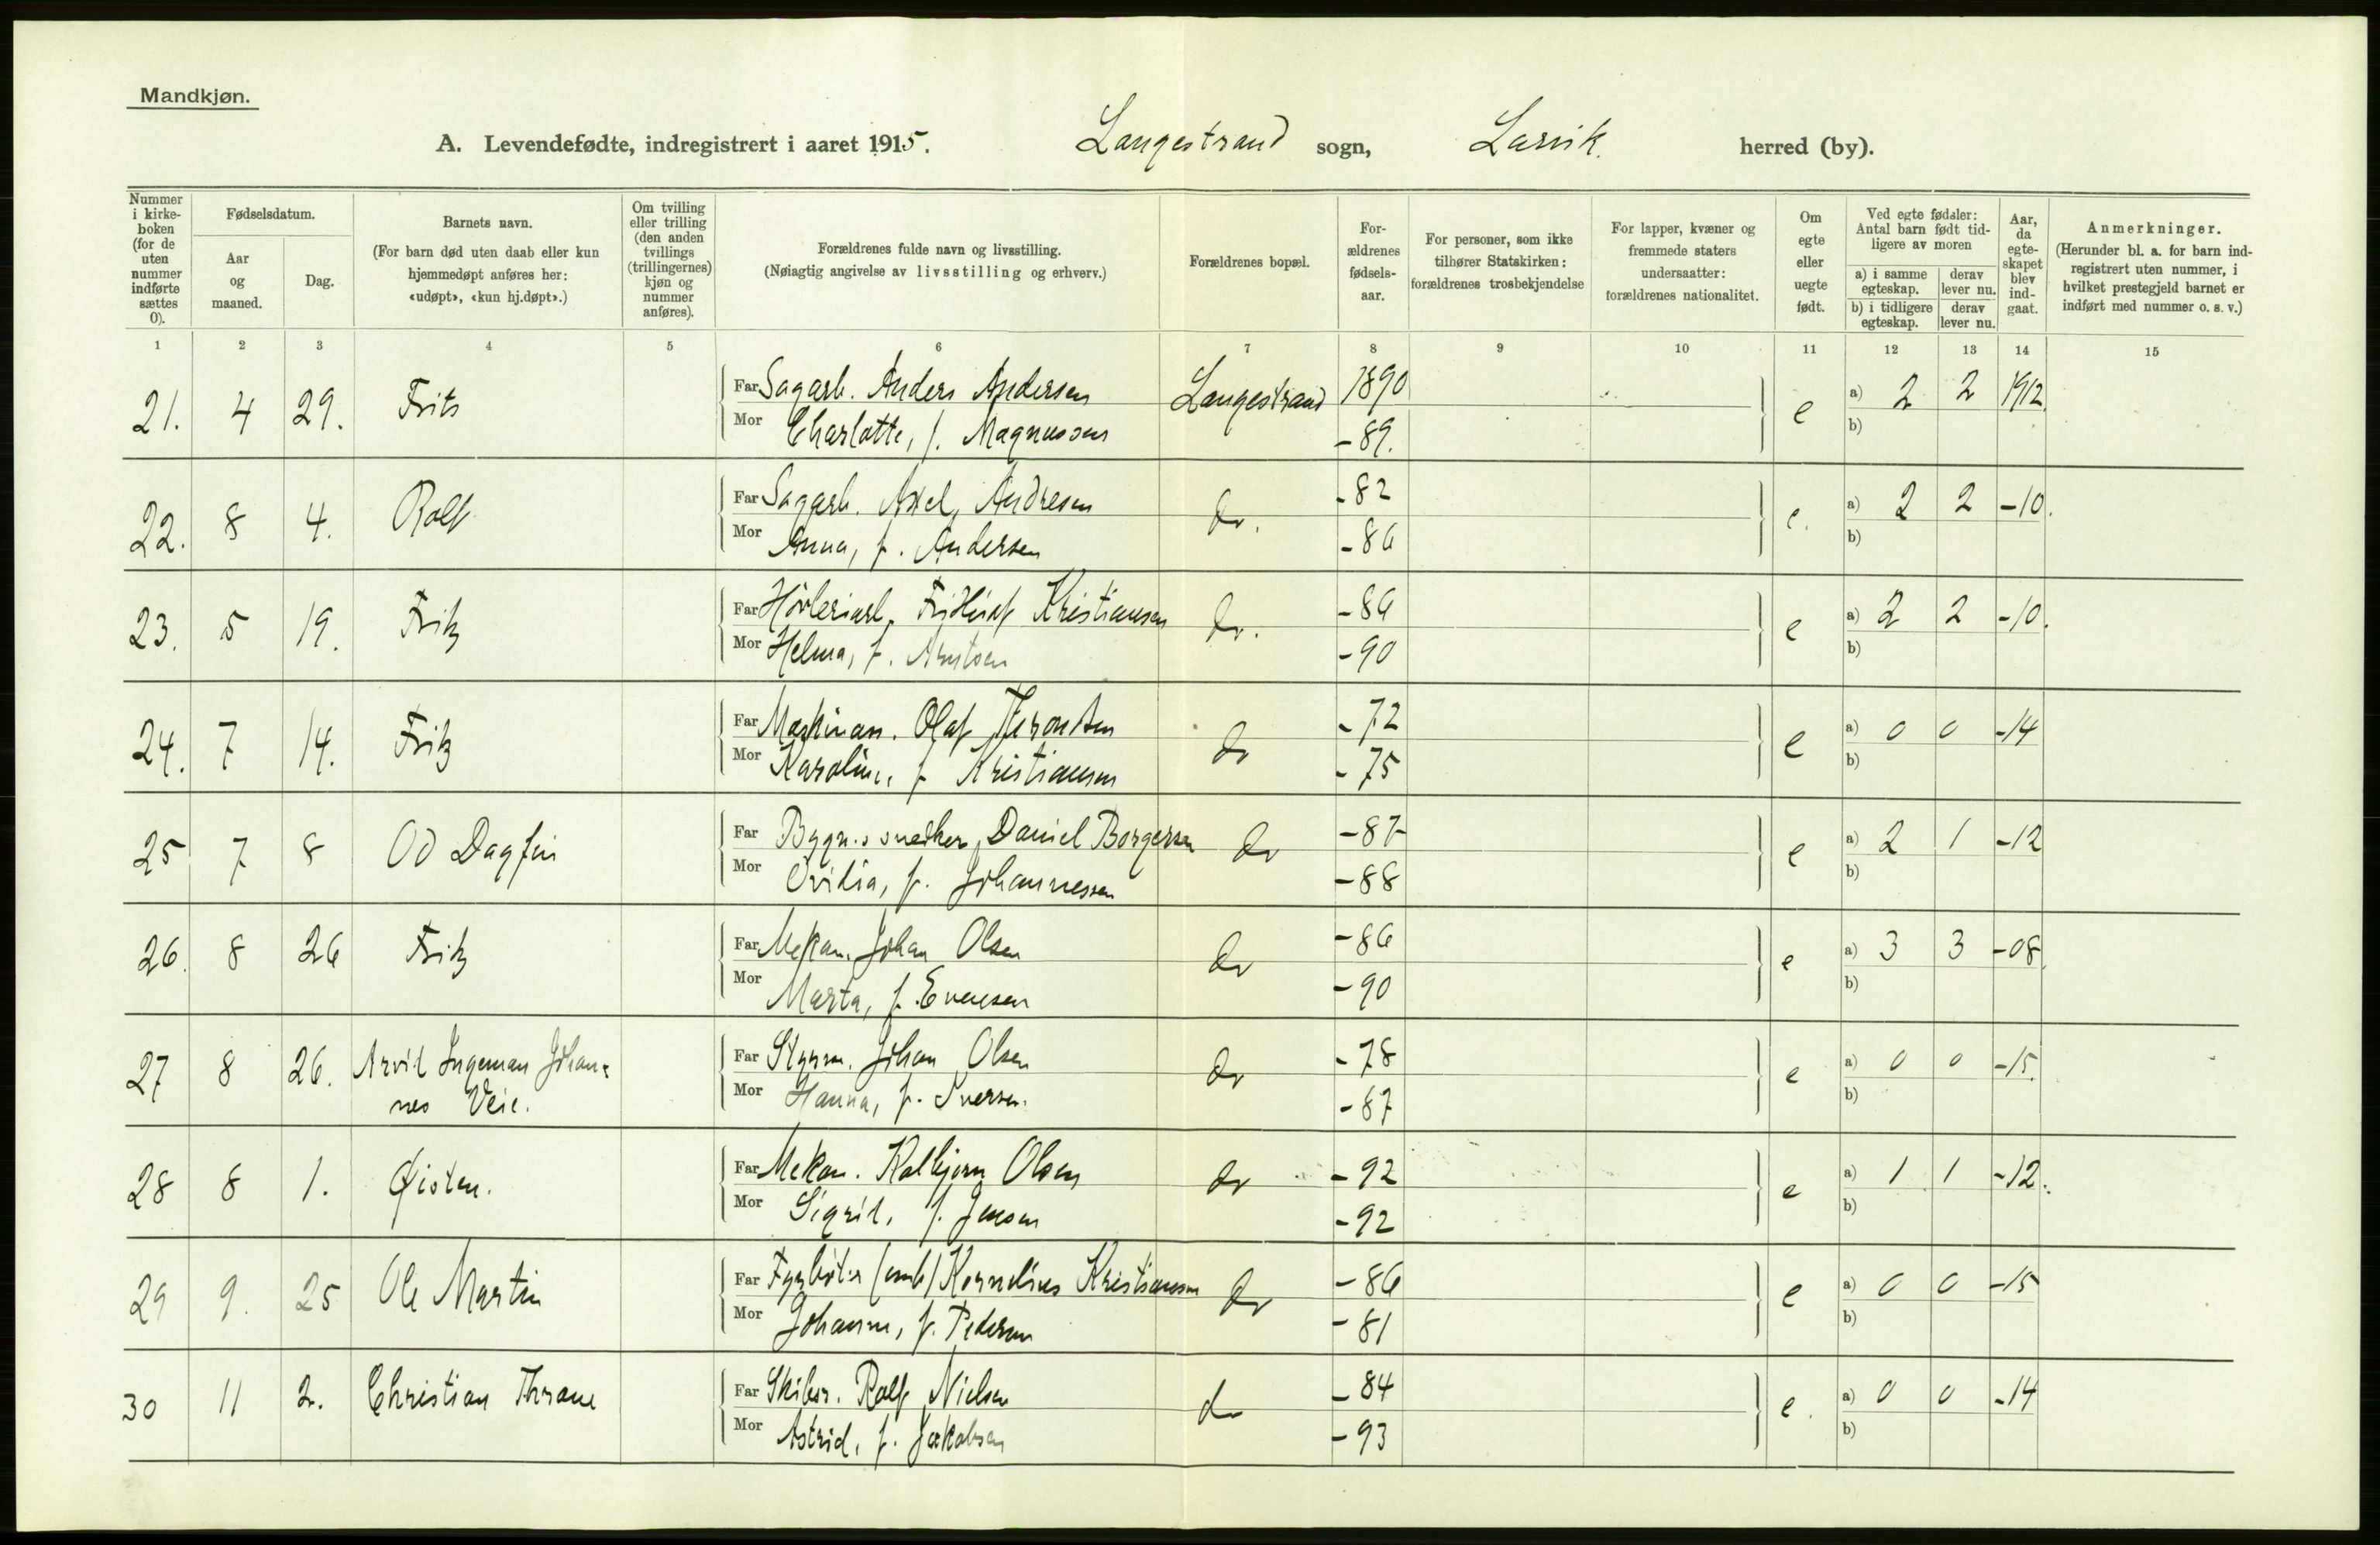 Mandkjøn.
A. Levendefødte, indregistrert i aaret 1915. Langestrand sogn, Larvik. herred (by).
Nummer i kirke-boken (for de uten nummer indførte sættes 0).
Fødselsdatum.
Aar og maaned.
Dag.
Barnets navn.
(For barn død uten daab eller kun hjemmedøpt anføres her: «udøpt», «kun hj.døpt».)
Om tvilling eller trilling (den anden tvillings (trillingernes) kjøn og nummer anføres).
Forældrenes fulde navn og livsstilling.
(Nøiagtig angivelse av livsstilling og erhverv.)
Forældrenes bopæl.
For-ældrenes fødsels-aar.
For personer, som ikke tilhører Statskirken: forældrenes trosbekjendelse
For lapper, kvæner og fremmede staters undersaatter: forældrenes nationalitet.
Om egte eller uegte født.
Ved egte fødsler: Antal barn født tid-ligere av moren
a) i samme egteskap. derav lever nu.
b) i tidligere egteskap. derav lever nu.
Aar, da egte-skapet blev ind-gaat.
Anmerkninger.
(Herunder bl. a. for barn ind-registrert uten nummer, i hvilket prestegjeld barnet er indført med nummer o. s. v.)
1 2 3 4 5 6 7 8 9 10 11 12 13 14 15
21. 4 29. Frits Far Sagarb. Anders Andersen Langestrand 1890 e a) 2 2 1912.
Mor Charlotte, f. Magnussen -89. b)
22. 8 4. Rolf Far Sagarb. Axel Andresen do. -82 e. a) 2 2 -10.
Mor Anna, f. Andersen -86 b)
23. 5 19. Fritz Far Høvleriarb. Fridthjof Kristiansen do. -86 e a) 2 2 -10.
Mor Helma, f. Arntsen -90 b)
24. 7 14. Fritz Far Maskinas. Olaf do -72 e a) 0 0 -14
Mor Karoline, f. Kristiansen -75 b)
25 7 8 Od Dagfin Far Bygn.s snedker Daniel Borgersen do -87 e a) 2 1 -12
Mor Ovidia, f. Johannessen -88 b)
26. 8 26 Fritz Far Mekan. Johan Olsen do -86 e a) 3 3 -08.
Mor Marta, f. Evensen -90 b)
27 8 26. Arvid Ingeman Johan- Far Styrm. Johan Olsen do -78 e a) 0 0 -15.
nes Veie. Mor Hanna, f. Iversen. -87 b)
28 8 1. Øisten. Far Mekan. Kolbjørn Olsen do -92 e a) 1 1 -12.
Mor Sigrid, f. Jensen -92 b)
29 9. 25 Ole Martin Far Fyrbøter (emb) Kornelius Kristiansen do -86 e a) 0 0 -15
Mor Johanne, f. Pedersen -81 b)
30 11 2. Christian Thrane Far Skibsr. Rolf Nielsen do -84 e. a) 0 0 -14
Mor Astrid, f. Jakobsen -93 b)